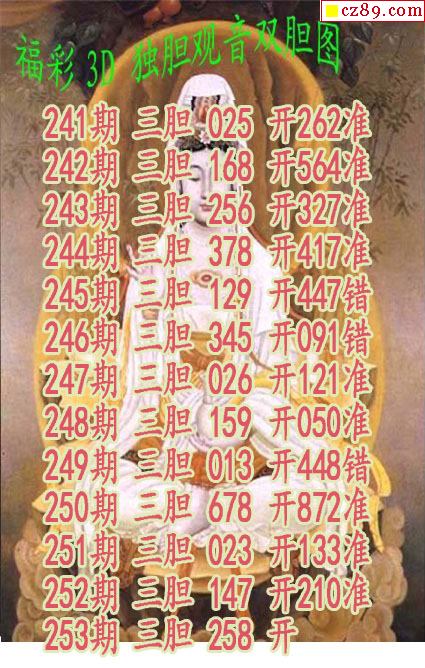 cz89.com
福彩 3D 独胆观音双胆图
241期 三胆 025 开262准
242期 三胆 168 开564准
243期 三胆 256 开327准
244期 三胆 378 开417准
245期 三胆 129 开447错
246期 三胆 345 开091错
247期 三胆 026 开121准
248期 三胆 159 开050准
249期 三胆 013 开448错
250期 三胆 678 开872准
251期 三胆 023 开133准
252期 三胆 147 开210准
253期 三胆 258 开